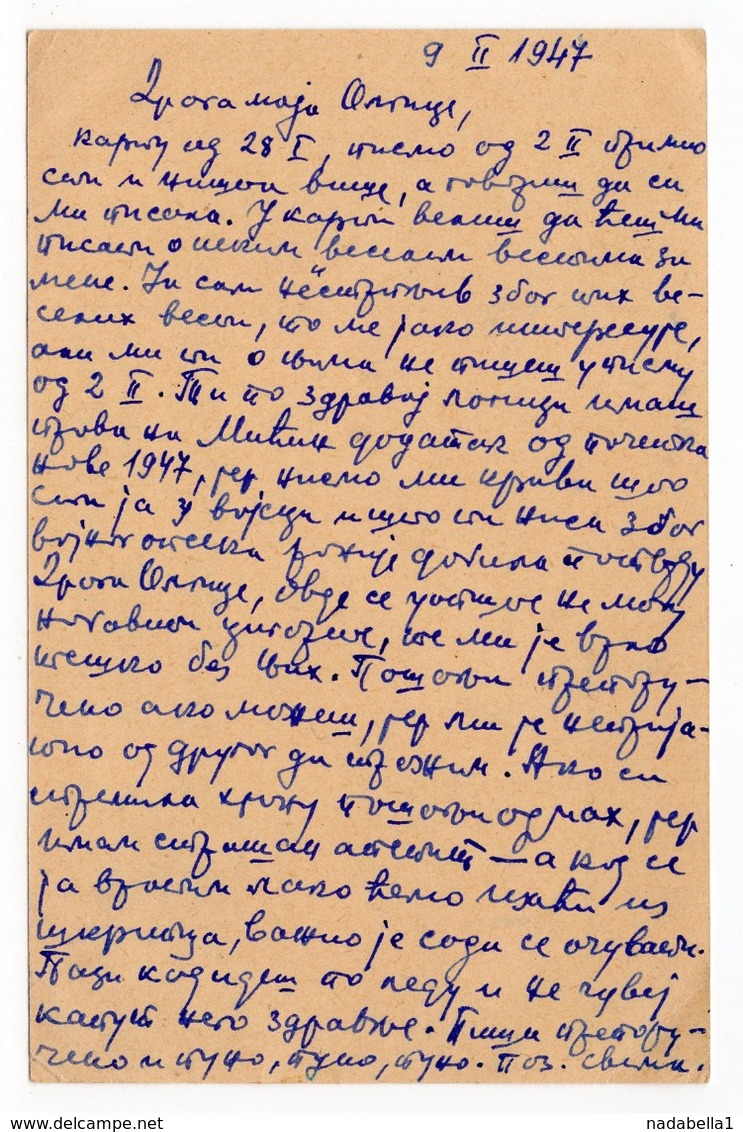 9 II 1947
Драга моја Олгице,
карту од 28 I, писмо од 2 II примио
сам и ништа више, а говориш да си
ми писала. У карти велиш да ћеш ми
писати о неким веселим вестима за
мене. Ја сам нестрпљив због тих ве-
селих вести, то ме јако интересује,
али ми ти о њима не пишеш у писму
од 2 II. Ти по здравој логици имаш
права на Мићин додатак од почетка
нове 1947, јер нисмо ми криви што
сам ја у војсци и што ти ниси због
војног отсека раније добила потврду
Драга Олгице, овде се уопште не могу
набавити цигарете, те ми је врло
тешко без њих. Пошаљи препору-
чено ако можеш, јер ми је неприја-
тно од другог да тражим. Ако си
спремила храну пошаљи одмах, јер
имам страшан апетит — а кад се
ја вратим лако ћемо
важно је сада се очувати.
Пази кад идеш по леду и не чувај
капут него здравље. Пиши препору-
чено и пуно, пуно, пуно. Поз. свима.
delcampe.net
nadabella1